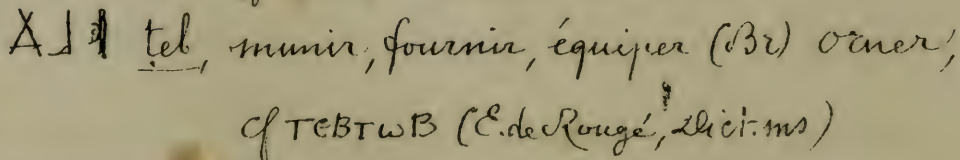 teb, munir, fournir, équiper (Br) orner,
cf ⲦⲈⲂⲦⲰⲂ (E. de Rougé, Dict. ms)